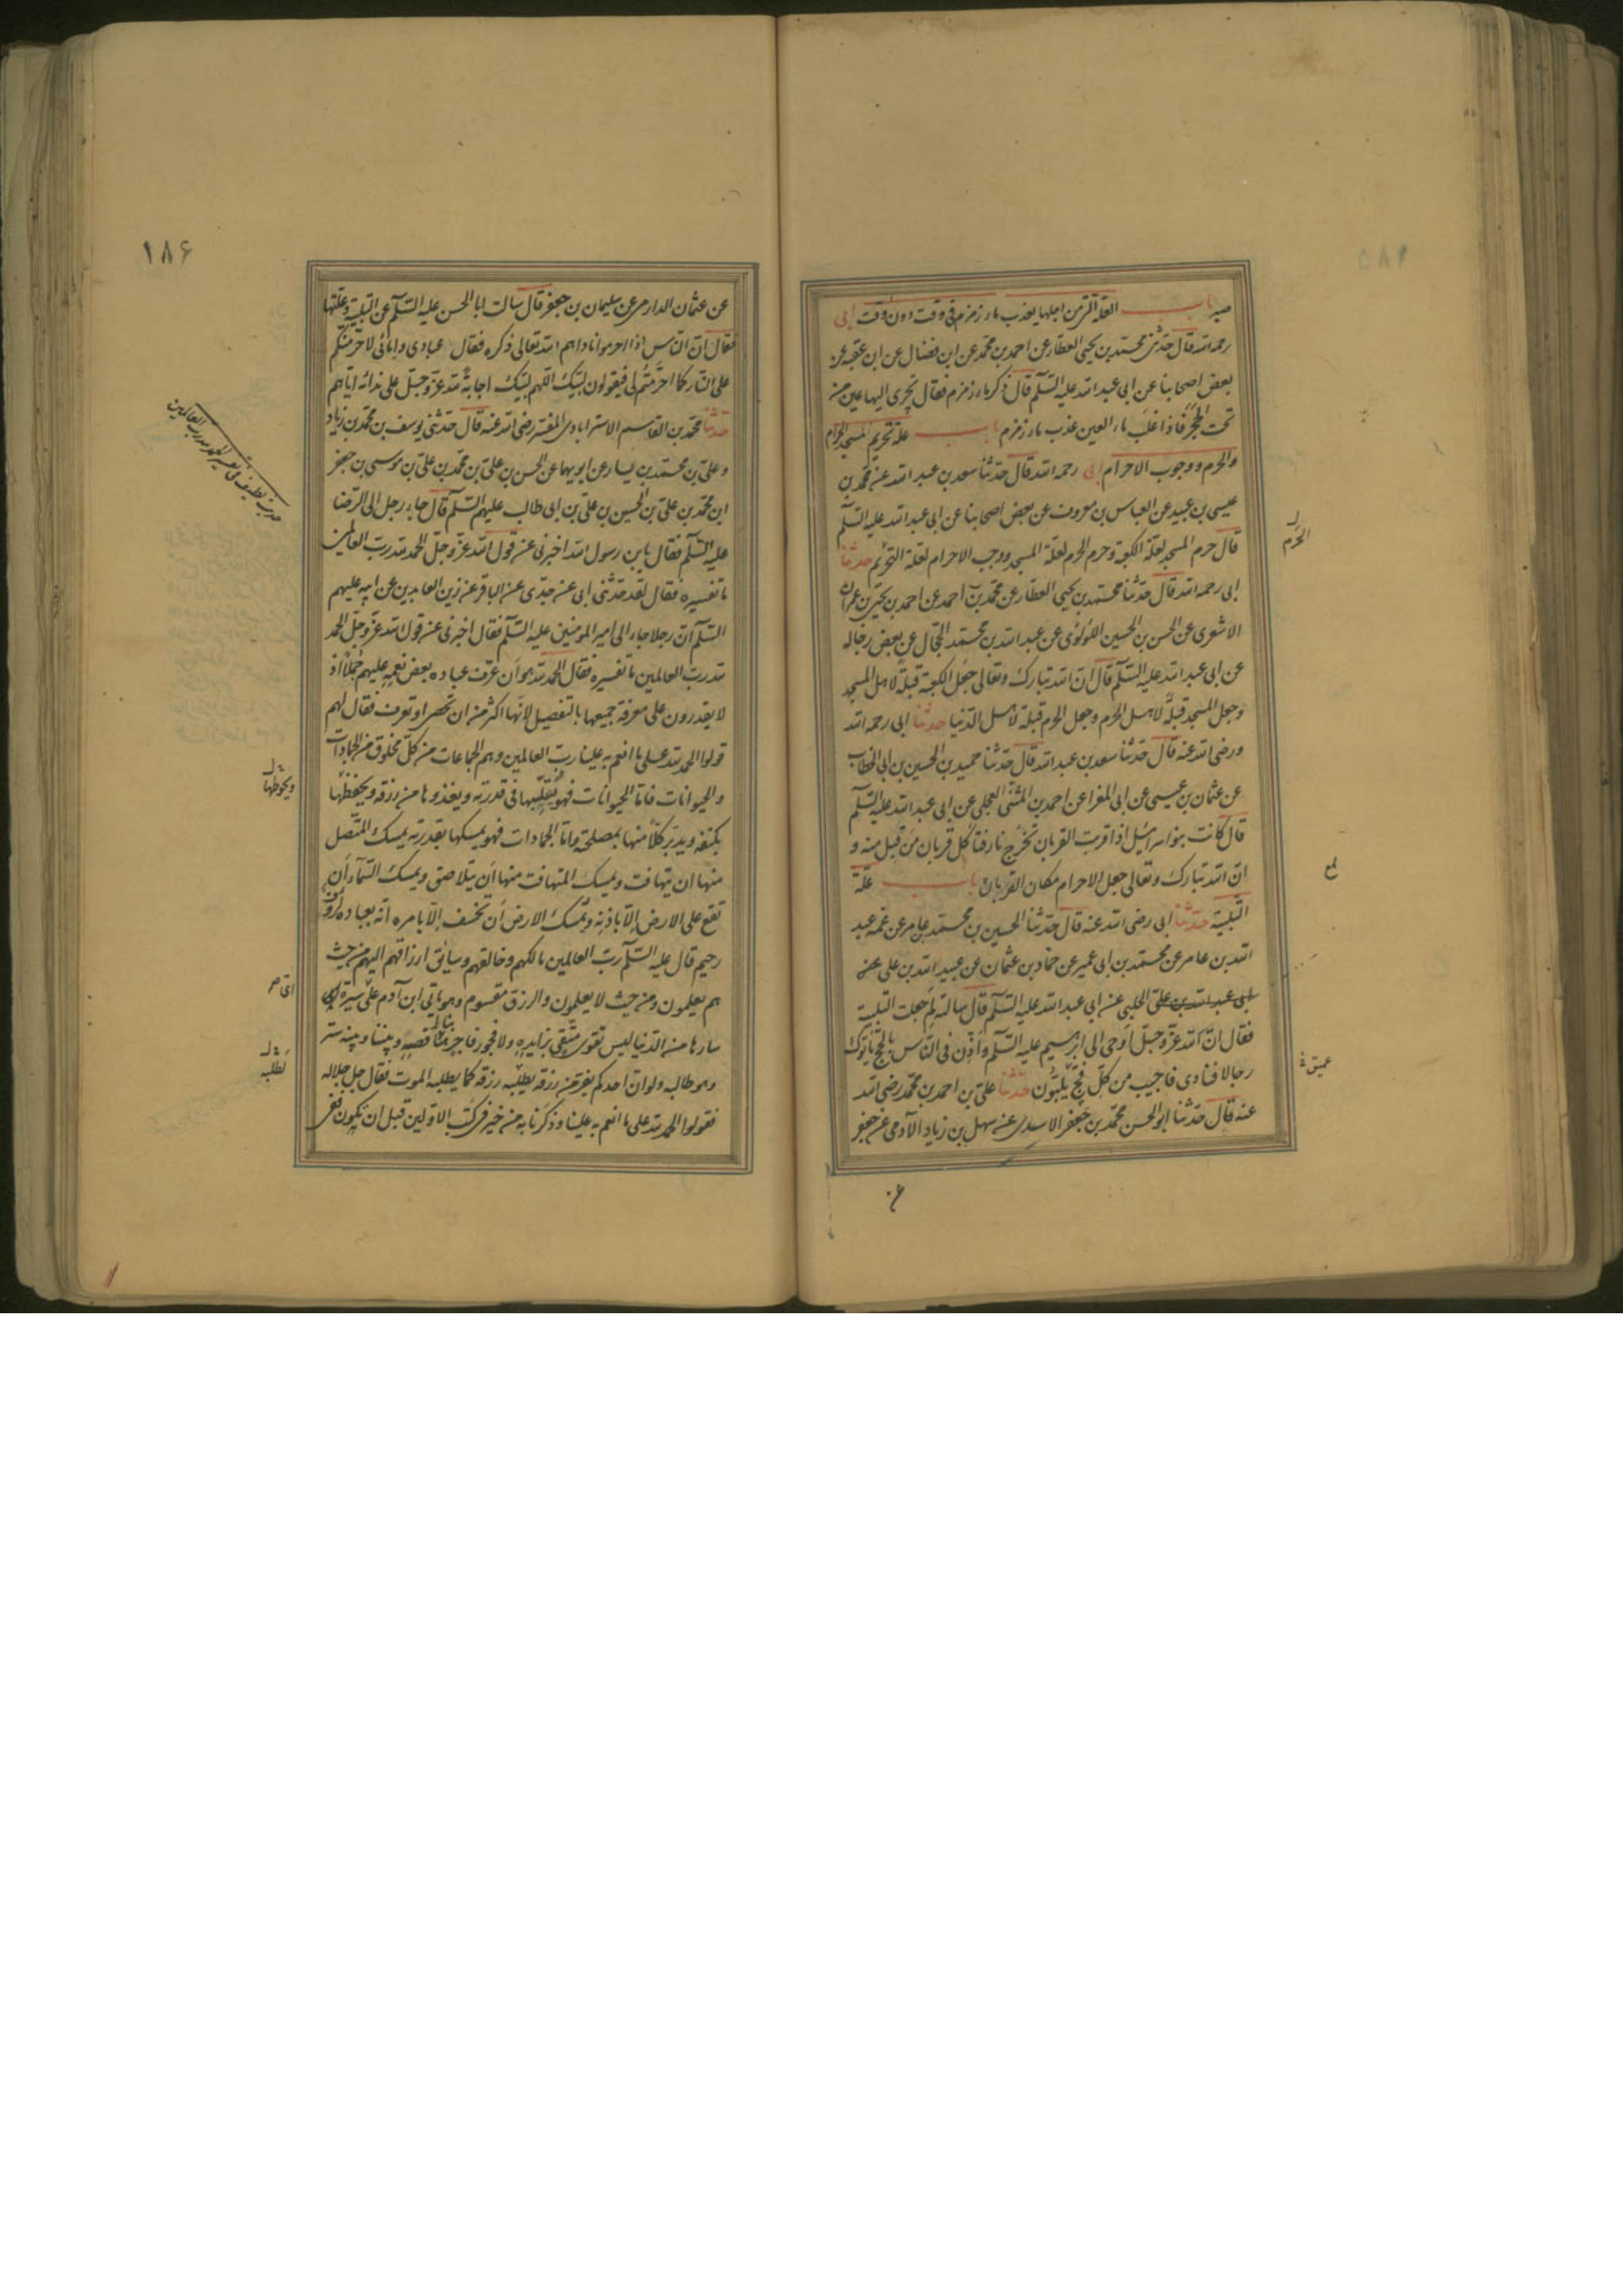 صبر باب العلة التي من اجلها يعذب ماء زمزم في وقت دون وقت ابي
رحمه الله قال حدثني محمد بن يحيى العطار عن احمد بن محمد عن ابن فضال عن ابن عقبه عن
بعض اصحابنا عن ابي عبد الله عليه السلم قال ذكر ماء زمزم فقال تجرى اليها عين من
تحت الحجر فاذا غلب ماء العين عذب ماء زمزم باب علة تحريم المسجد الحرام
والحرم ووجوب الاحرام ابى رحمه الله قال حدثنا سعد بن عبد الله عن محمد بن
عيسى بن عبيد عن العباس بن معروف عن بعض اصحابنا عن ابي عبد الله عليه السلم
قال حرم المسجد لعلة الكعبة وحرم الحرم لعلة المسجد ووجب الاحرام لعلة التحريم حدثنا
الحرم
ابى رحمه الله قال حدثنا محمد بن يحيى العطار عن محمد بن احمد عن احمد بن يحيى بن عمران
الاشعرى عن الحسن بن الحسين اللؤلؤى عن عبد الله بن محمد الحجال عن بعض رجاله
عن ابى عبد الله عليه السلم قال ان الله تبارك وتعالى جعل الكعبة قبلة لاهل المسجد
وجعل المسجد قبلة لاهل الحرم وجعل الحرم قبلة لاهل الدنيا حدثنا ابى رحمه الله
ورضى الله عنه قال حدثنا سعد بن عبد الله قال حدثنا حميد بن الحسين بن ابى الخطاب
عن عثمان بن عيسى عن ابى المغرا عن احمد بن المثنى العجلى عن ابى عبد الله عليه السلم
قال كانت بنوا سرائيل اذا قربت القربان تخرج نار فتاكل قربان من قبل منه و
ان الله تبارك وتعالى جعل الاحرام مكان القربان باب علة
التلبية حدثنا ابى رضى الله عنه قال حدثنا الحسين بن محمد بن عامر عن عمه عبد
الله بن عامر عن محمد بن ابى عمير عن حماد بن عثمان عن عبيد الله بن على عن
ابى عبد الله بن على الحلبى عن ابى عبد الله عليه السلم قال سالته لم جعلت التلبية
فقال ان الله عز وجل اوحى الى ابرهيم عليه السلم واذن فى الناس بالحج ياتوك
رجالا فنادى فاجيب من كل فج يلبون حدثنا على بن احمد بن محمد رضى الله
عميق
عنه قال حدثنا ابو الحسن محمد بن جعفر الاسدى عن سهل بن زياد الآدمى عن جعفر
عن
١٨۶
عن عثمان الدارمى عن سليمان بن جعفر قال سالت ابا الحسن عليه السلم عن التلبية وعلتها
فقال ان الناس اذا احرموا ناداهم الله تعالى ذكره فقال عبادى وامائى لاحرمنكم
على النار كما احرمتم لى فيقولون لبيك اللهم لبيك اجابة لله عز وجل على ندائه اياهم
حدثنا محمد بن القاسم الاسترابادى المفسر رضى الله عنه قال حدثنى يوسف بن محمد بن زياد
وعلى بن محمد بن يسار عن ابويهما عن الحسن بن على بن محمد بن على بن موسى بن جعفر
ابن محمد بن على بن الحسين بن على بن ابى طالب عليهم السلم قال جاء رجل الى الرضا
عليه السلم فقال يا بن رسول الله اخبرنى عن قول الله عز وجل الحمد لله رب العالمين
ما تفسيره فقال لقد حدثنى ابى عن جدى عن الباقر عن زين العابدين عن ابيه عليهم
السلم ان رجلا جاء الى امير المومنين عليه السلم فقال اخبرنى عن قول الله عز وجل الحمد
لله رب العالمين ما تفسيره فقال الحمد لله هو ان عرف عباده بعض نعمه عليهم جملا اذ
لا يقدرون على معرفة جميعها بالتفصيل لانها اكثر من ان تحصر او تعرف فقال لهم
قولوا الحمد لله على ما انعم به علينا رب العالمين وهم الجماعات من كل مخلوق من الجمادات
والحيوانات فاما الحيوانات فهو يقلبها فى قدرته ويغذوها من رزقه ويحفظها
ويحوطها
بكنفه ويدبر كلا منها بمصلحته واما الجمادات فهو يمسكها بقدرته يمسك المتصل
منها ان يتهافت ويمسك المتهافت منها ان يتلاصق ويمسك السماء ان
تقع على الارض الا باذنه ويمسك الارض ان تخسف الا بامره انه بعباده لرؤف
رحيم قال عليه السلم رب العالمين مالكهم وخالقهم وسائق ارزاقهم اليهم من حيث
هم يعلمون ومن حيث لا يعلمون والرزق مقسوم وهو ياتى ابن آدم على سيرة
سارها من الدنيا ليس تقوى متقى بزايده ولا فجور فاجر بناقصه وبيننا وبينه ستر
وهو طالبه ولو ان احدكم يفر من رزقه يطلبه رزقه كما يطلبه الموت فقال جل جلاله
لطلبه
فقولوا الحمد لله على ما انعم به علينا وذكرنا به من خير فى كتب الاولين قبل ان نكون ففى